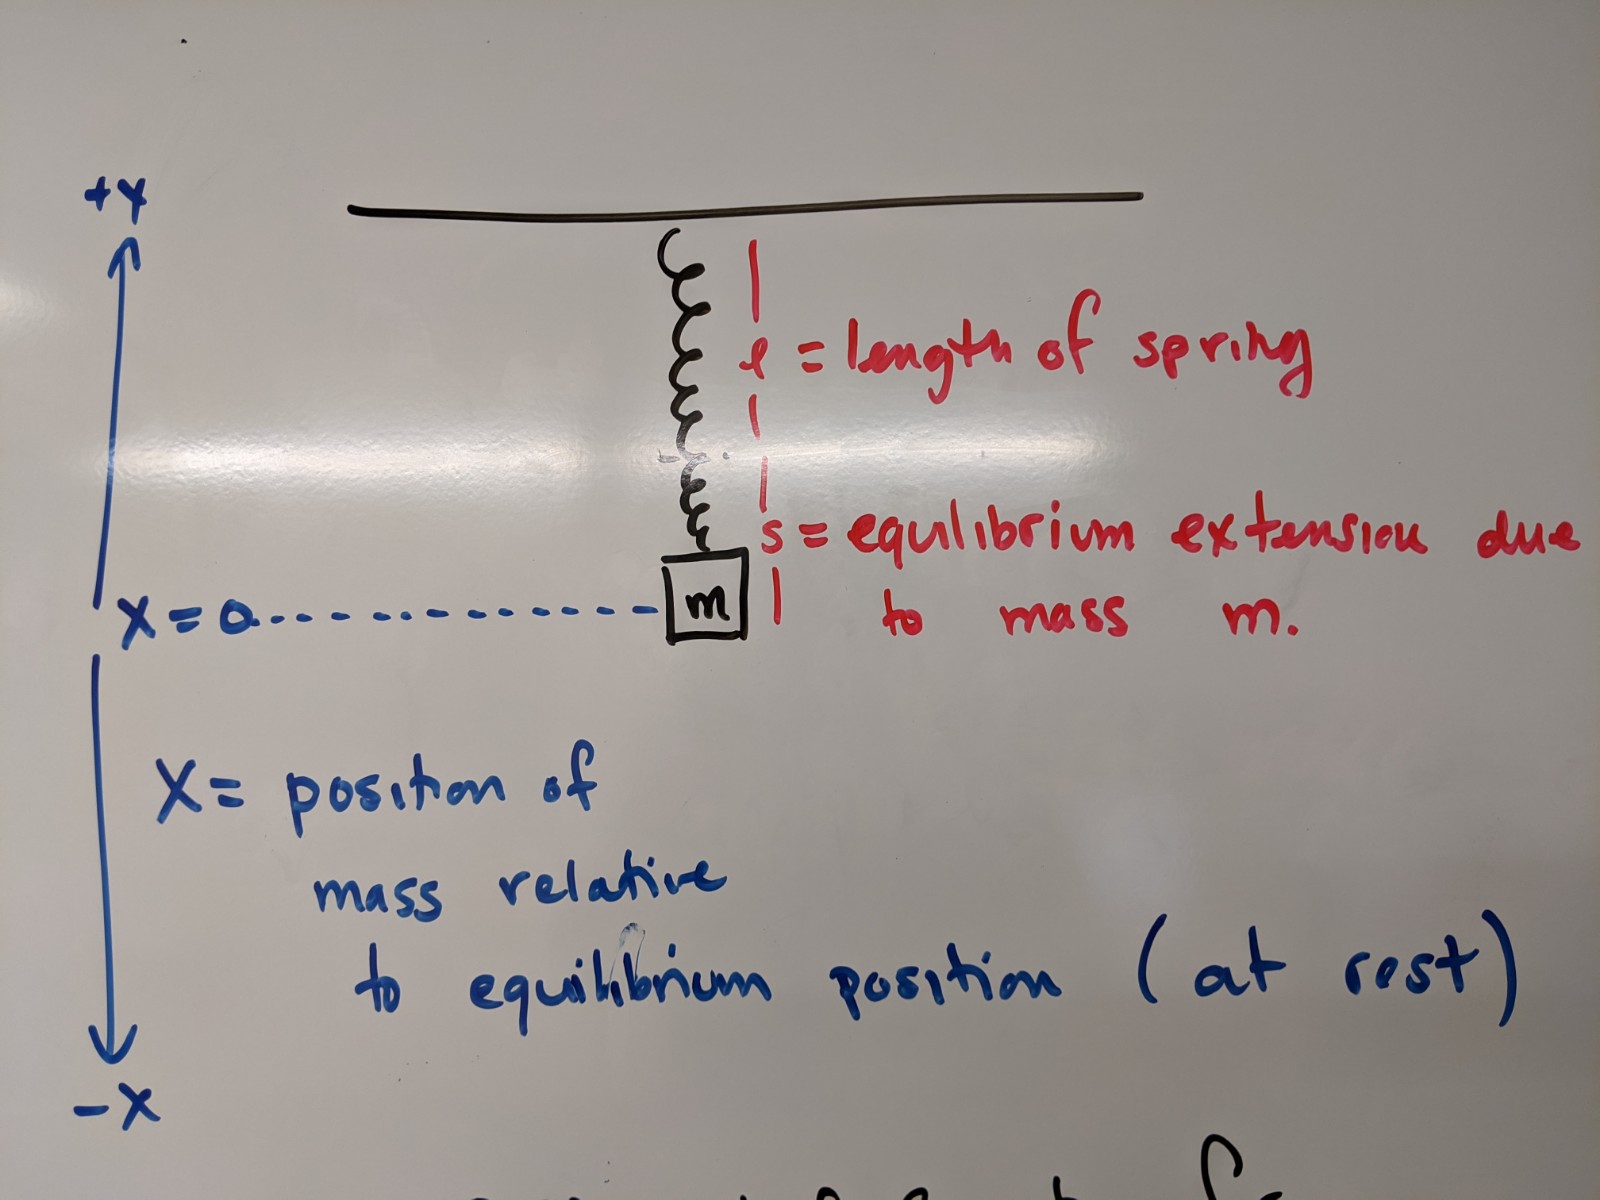 +x
l = length of spring
s = equilibrium extension due
to mass m.
m
x = 0
X = position of
mass relative
to equilibrium position (at rest)
-x